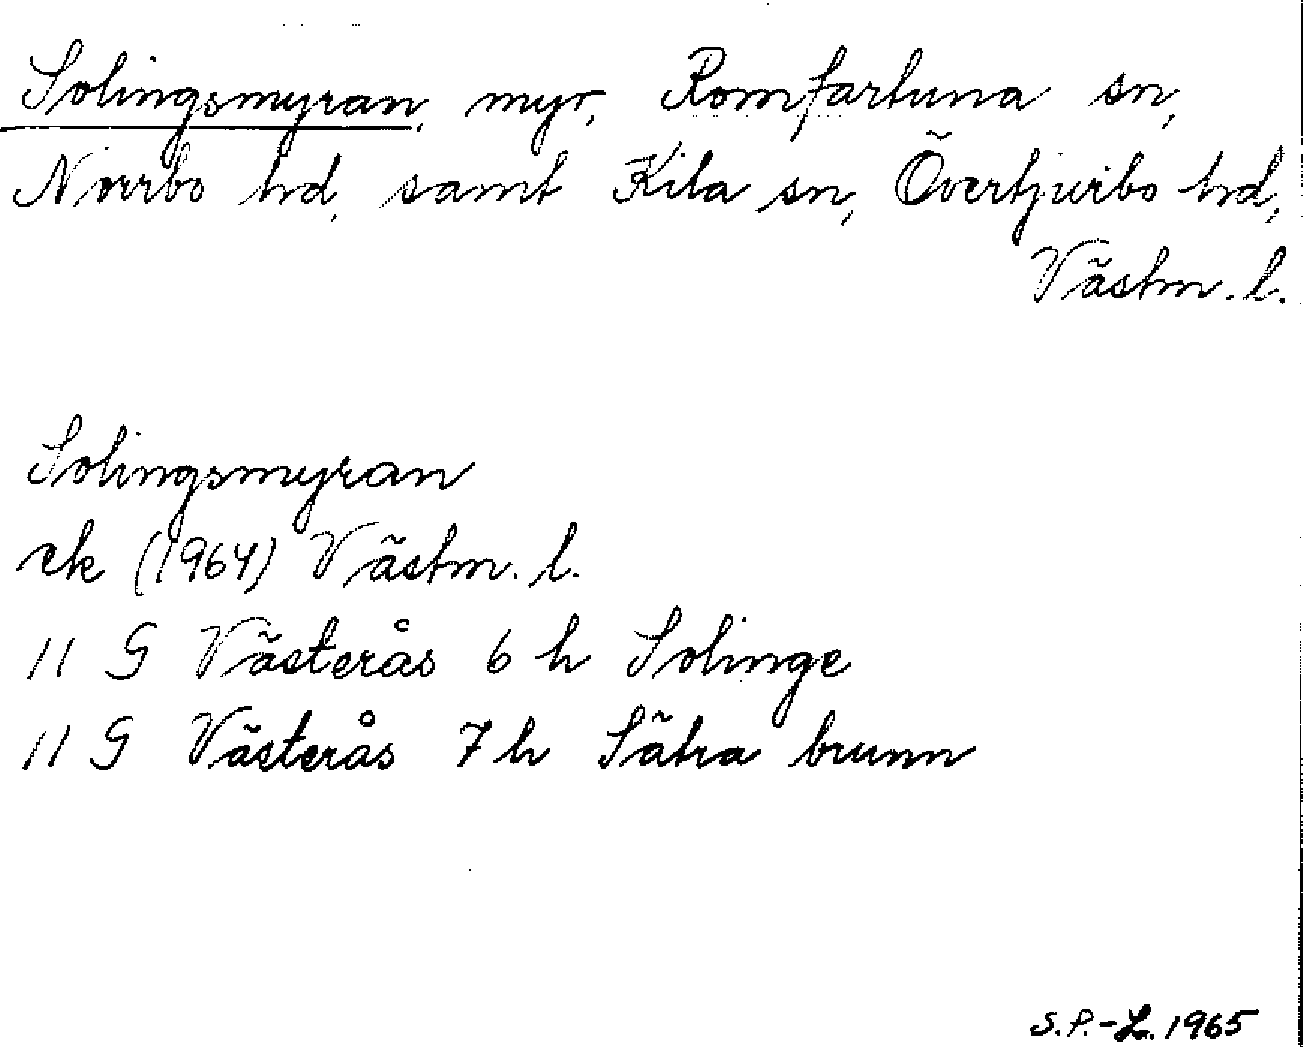 Solingsmyran, myr, Romfartuna sn,
Norrbo hd, samt Kila sn, Övertjurbo hd,
Västm. l.
Solingsmyran
ek (1964) Västm. l.
11 G Västerås 6 h Solinge
11 G Västerås 7 h Sätra brunn
S.P.-L. 1965